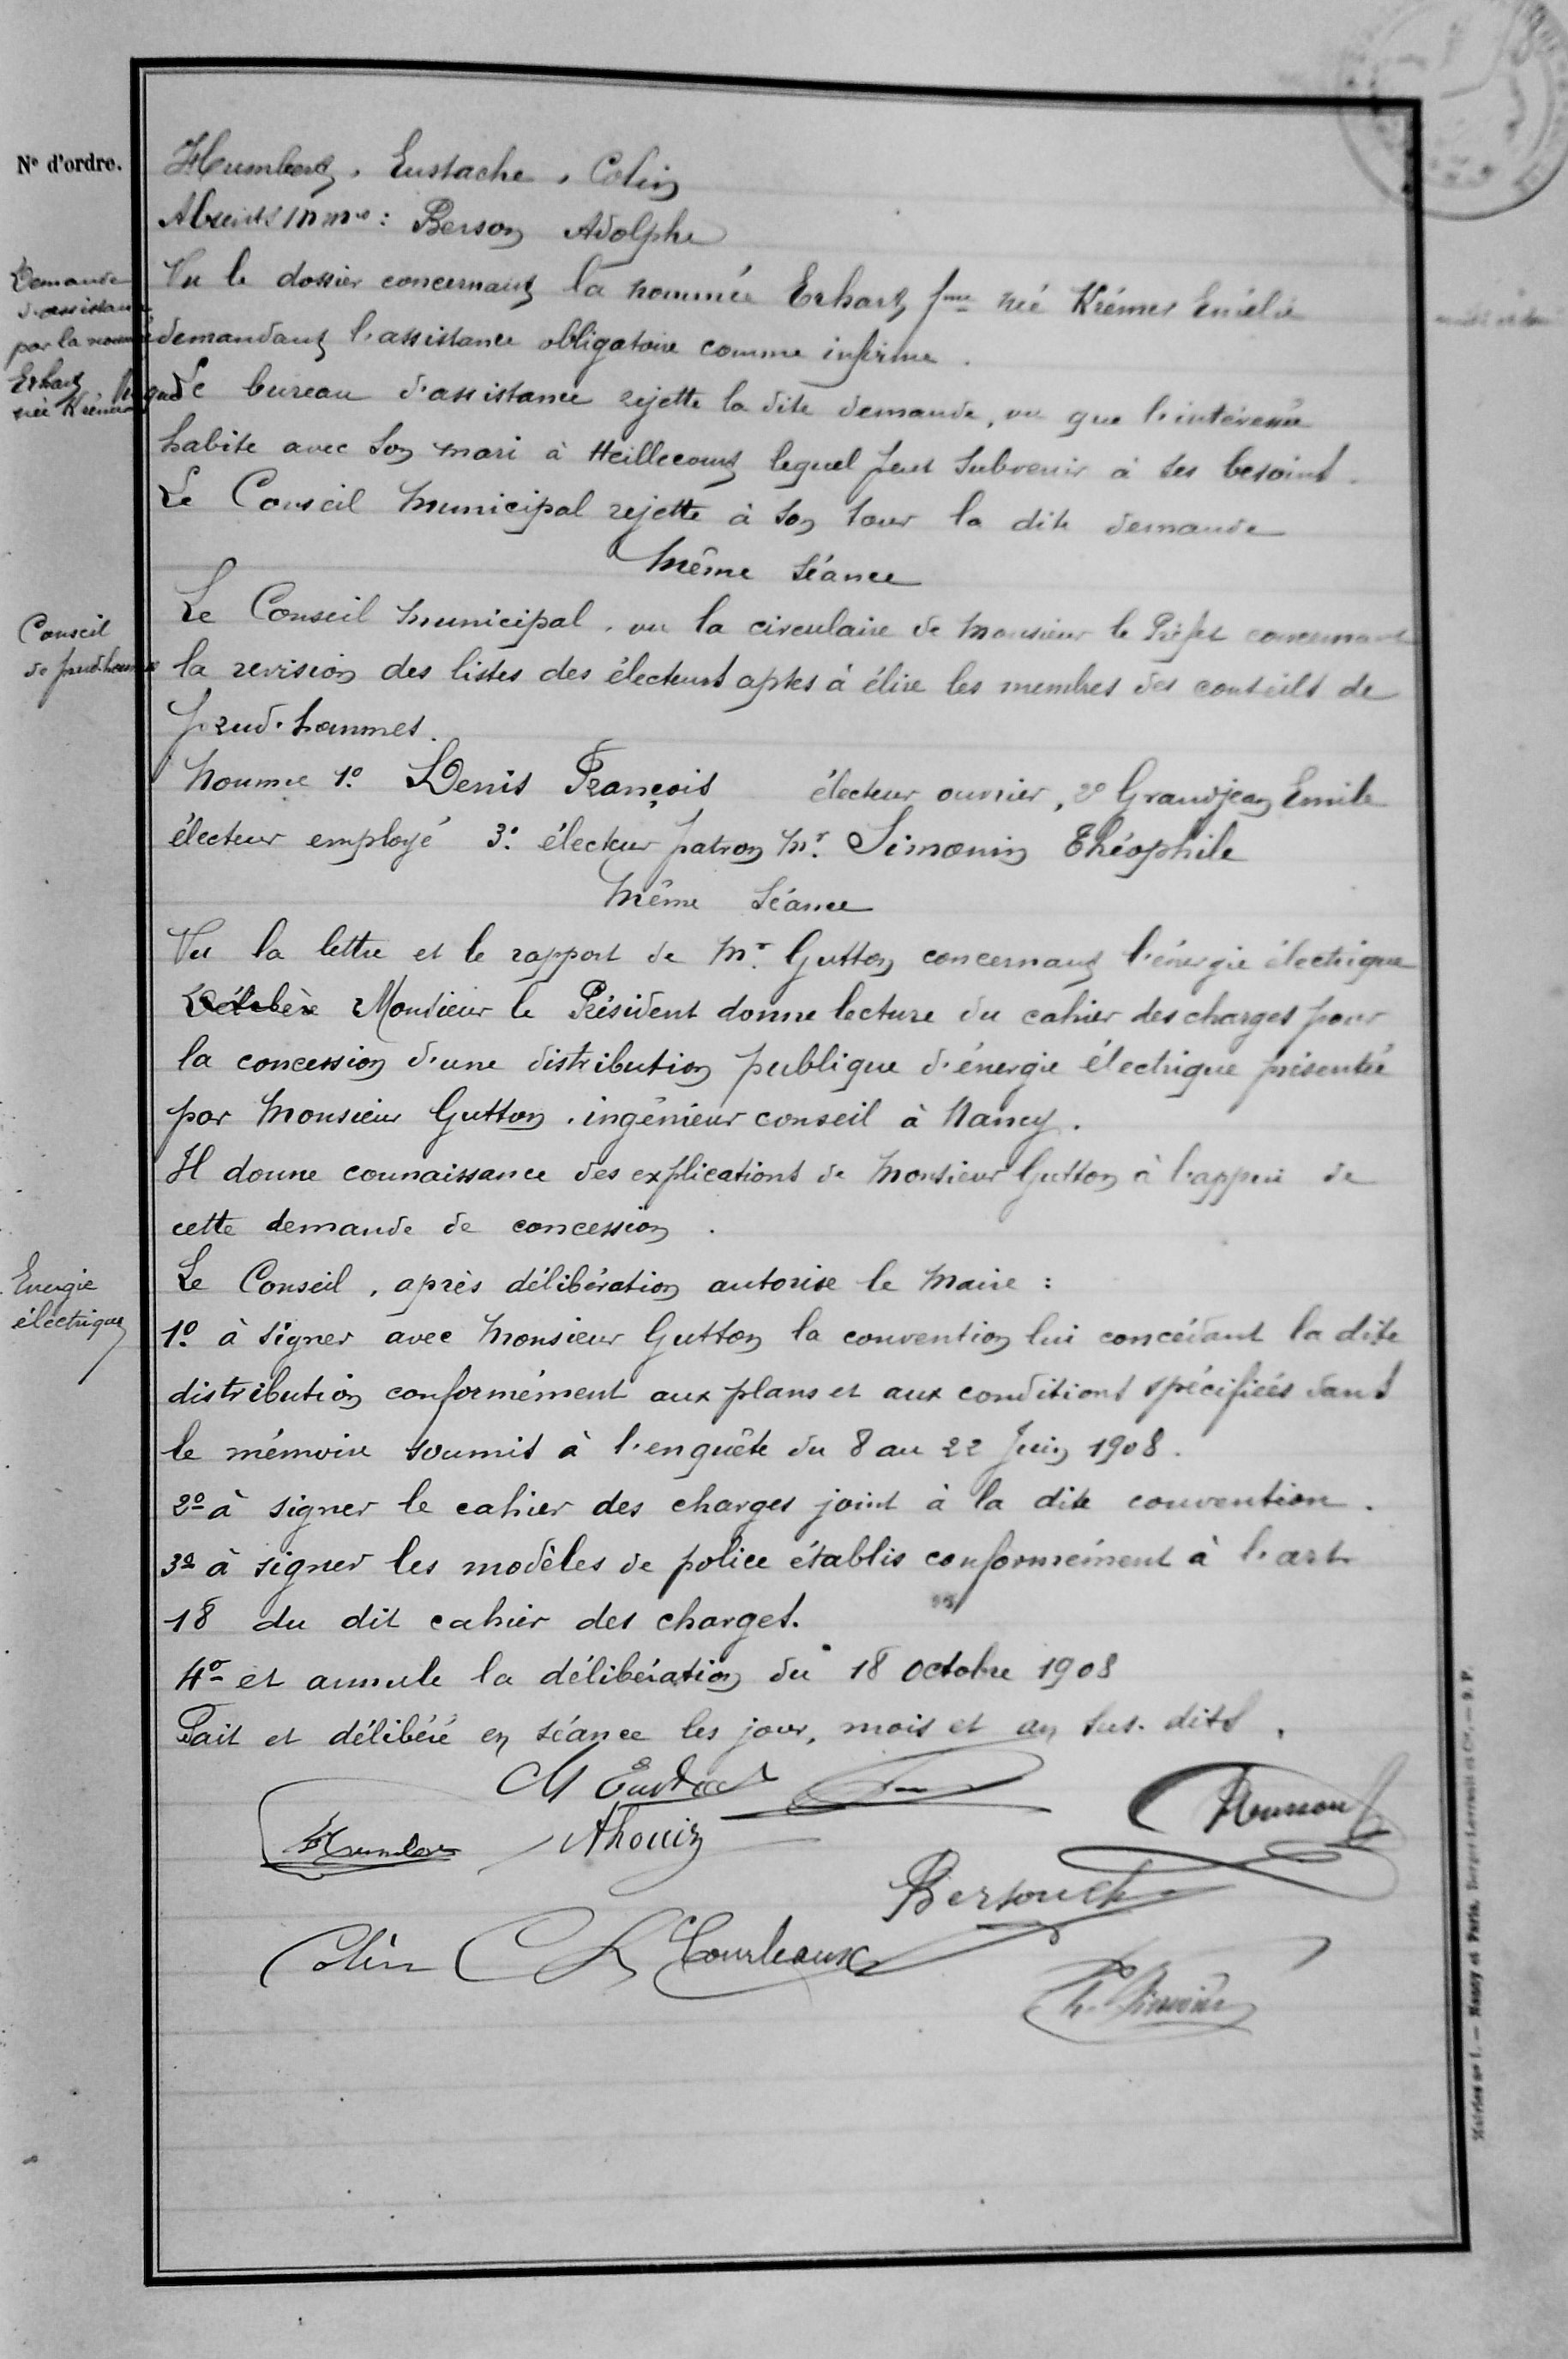 N° d'ordre.
Humbert, Eustache, Colin
Absents MM rs : Berson Adolphe
Demande
d'assistance
par la nommée
Erhart
née Krémer
Vu le dossier concernant la nommée Erhart fme née Krémer Emélie
demandant l'assistance obligatoire comme infirme.
Le bureau d'assistance rejette la dite demande, vu que l'intéressée
habite avec son mari à Heillecourt lequel peut subvenir à ses besoins.
Le Conseil Municipal rejette à son tour la dite demande
Même séance
Conseil
de prud'homme
Le Conseil Municipal, vu la circulaire de Monsieur le Préfet concernant
la revision des listes des électeurs aptes à élire les membres des conseils de
prud'hommes.
Nomme 1° Denis François électeur ouvrier, 2° Grandjean Emile
électeur employé 3° électeur patron Mr. Simonin Théophile
Même Séance
Vu la lettre et le rapport de Mr. Gutton concernant l'énergie électrique
Délibère Monsieur le Président donne lecture du cahier des charges pour
la concession d'une distribution publique d'énergie électrique présentée
par Monsieur Gutton, ingénieur conseil à Nancy.
Il donne connaissance des explications de Monsieur Gutton à l'appui de
cette demande de concession.
Energie
électrique
Le Conseil, après délibération autorise le Maire :
1° à signer avec Monsieur Gutton la convention lui concédant la dite
distribution conformément aux plans et aux conditions spécifiées dans
le mémoire soumis à l'enquête du 8 au 22 Juin 1908.
2° à signer le cahier des charges joint à la dite convention.
3° à signer les modèles de police établis conformément à l'art
18 du dit cahier des charges.
4° et annule la délibération du 18 octobre 1908
Fait et délibéré en séance les jour, mois et an sus-dits.
M Eustache
Humbert
Thouin
Bertouche
Colin
Courleaux
Th. Simonin
Mairies n° 1. — Nancy et Paris. Berger-Levrault et Cie. — 9. P.